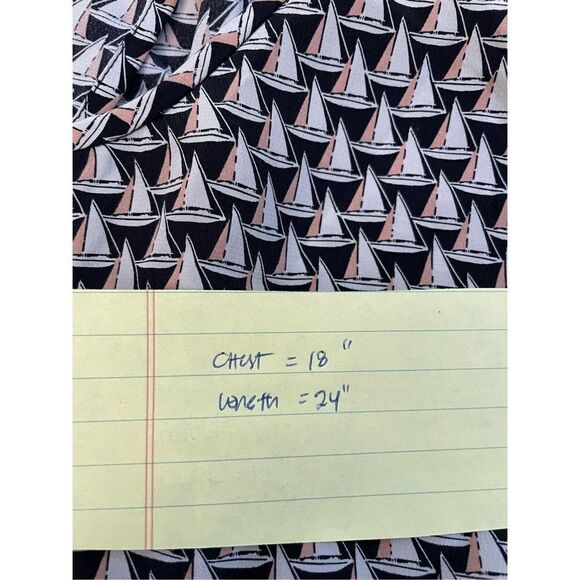 CHEST = 18 "
Length = 24"